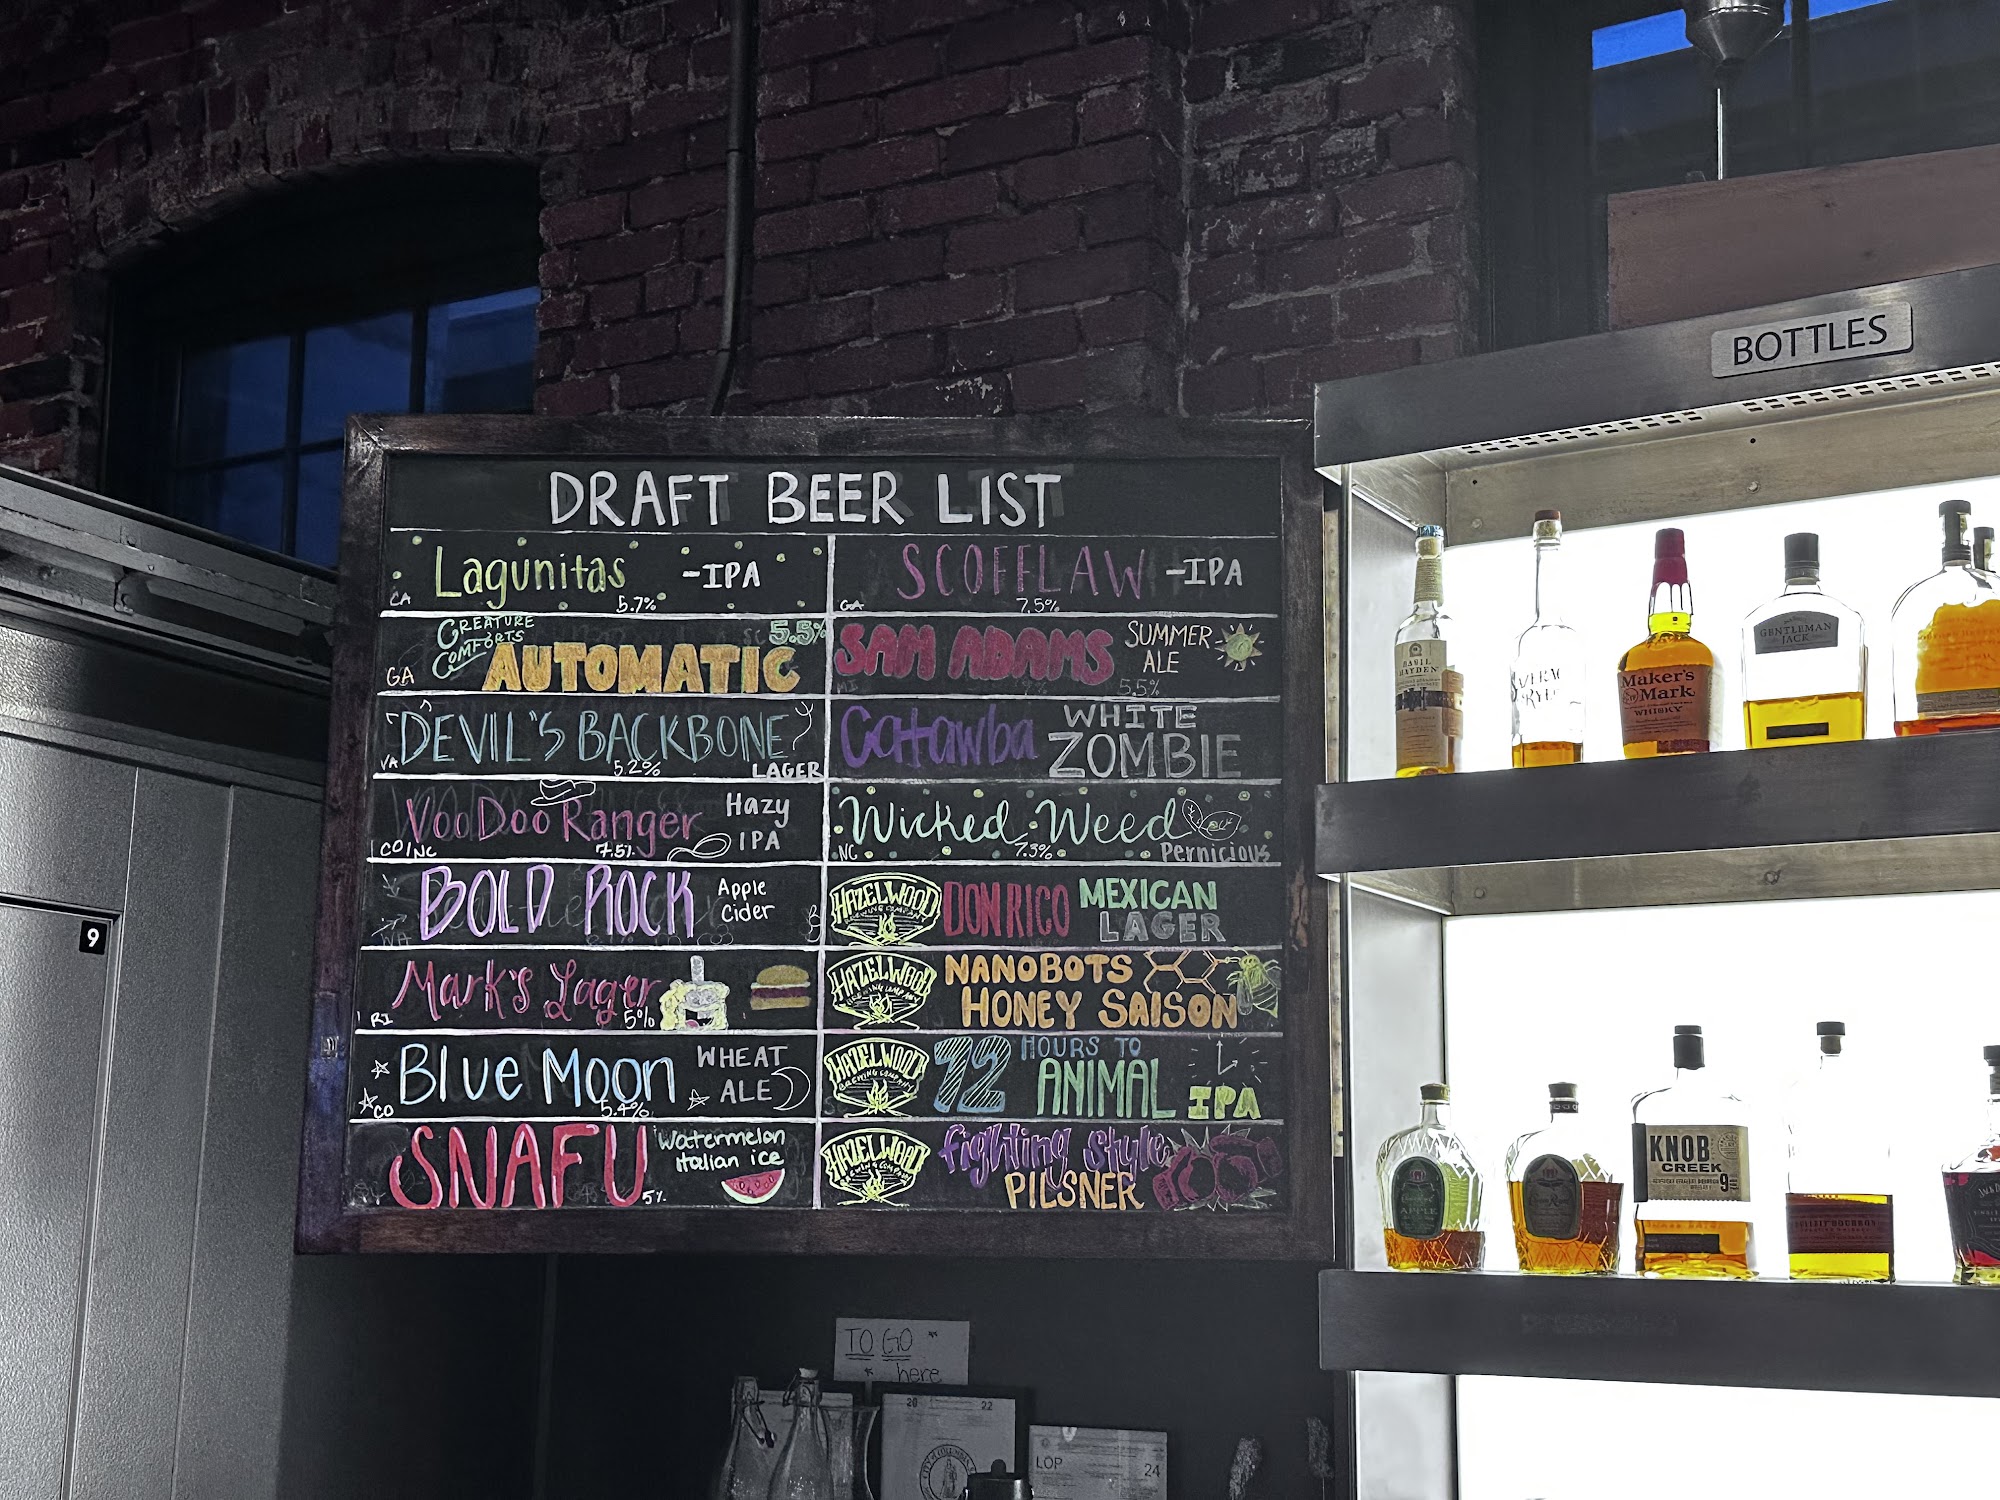 DRAFT BEER LIST
Lagunitas -IPA
CA 5.7%
CREATURE
COMFORTS
5.5%
GA AUTOMATIC
DEVIL'S BACKBONE
VA 5.2% LAGER
VooDoo Ranger Hazy
IPA
CO/NC 7.5%
BOLD ROCK Apple
Cider
Mark's Lager
RI 5%
Blue Moon WHEAT
ALE
CO 5.4%
SNAFU Watermelon
Italian ice
5%
SCOFFLAW -IPA
GA 7.5%
SAM ADAMS SUMMER
ALE
5.5%
Catawba WHITE
ZOMBIE
Wicked Weed
NC 7.3% Pernicious
HAZELWOOD
BREWING COMPANY
DON RICO MEXICAN
LAGER
HAZELWOOD
BREWING COMPANY
NANOBOTS
HONEY SAISON
HAZELWOOD
BREWING COMPANY
72 HOURS TO
ANIMAL IPA
HAZELWOOD
BREWING COMPANY
fighting style
PILSNER
BOTTLES
BASIL
HAYDEN
Maker's
Mark
WHISKY
GENTLEMAN
JACK
APPLE
KNOB
CREEK
9
BULLEIT BOURBON
9
TO GO
here
20 22
LOP 24